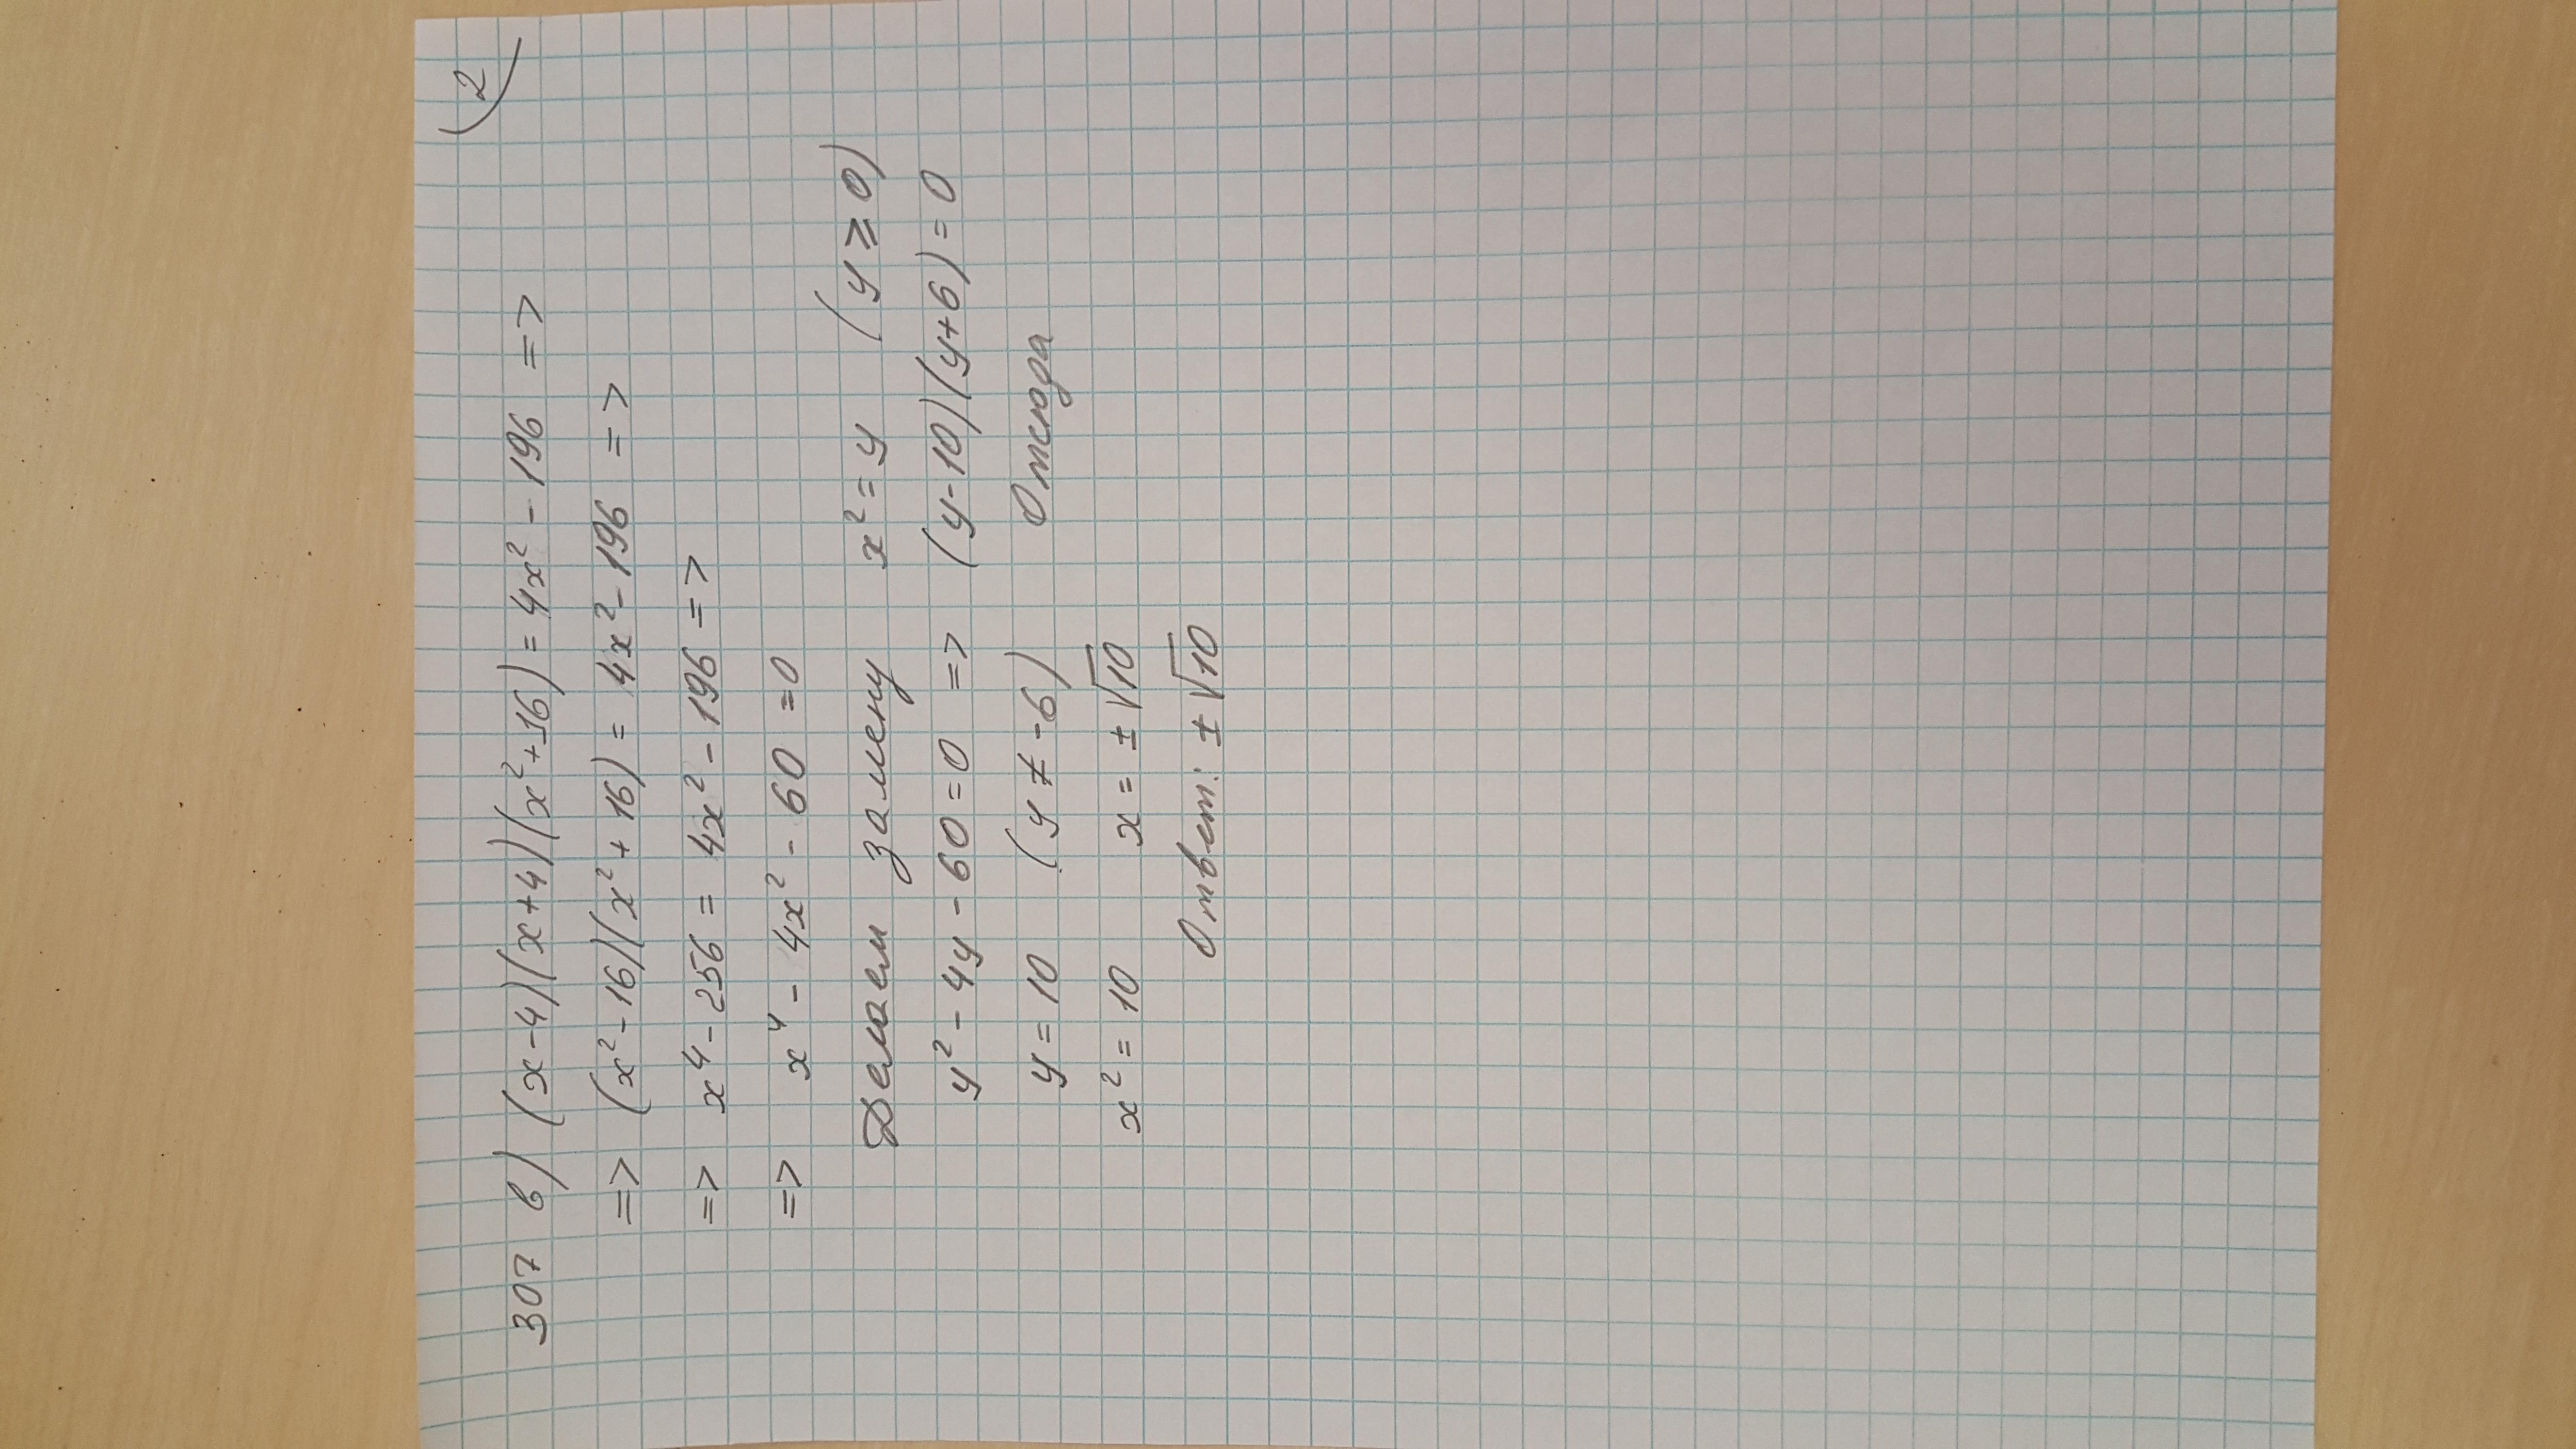 2
307 в) (x-4)(x+4)(x²+16) = 4x² - 196 =>
=> (x²-16)(x²+16) = 4x² - 196 =>
=> x⁴ - 256 = 4x² - 196 =>
=> x⁴ - 4x² - 60 = 0
Делаем замену x² = y (y ≥ 0)
y² - 4y - 60 = 0 => (y-10)(y+6) = 0
y = 10 (y ≠ -6) Отсюда
x² = 10 x = ± √10
Ответ: ± √10